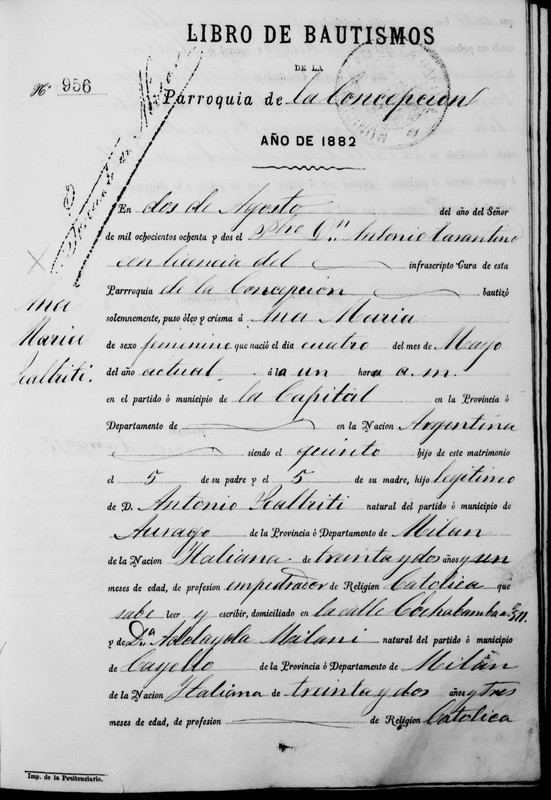 LIBRO DE BAUTISMOS
DE LA
No. 956
Parroquia de la Concepcion
AÑO DE 1882
En dos de Agosto del año del Señor
de mil ochocientos ochenta y dos el Pbro Dn. Antonio Tarantino
con licencia del infrascripto Cura de esta
Parrroquia de la Concepcion bautizó
solemnemente, puso óleo y crisma á Ana Maria
Ana
Maria
de sexo femenino que nació el dia cuatro del mes de Mayo
del año actual á la un hora a.m.
en el partido ó municipio de la Capital en la Provincia ó
Departamento de en la Nacion Argentina
siendo el quinto hijo de este matrimonio
el 5 de su padre y el 5 de su madre, hijo legitimo
de D. Antonio natural del partido ó municipio de
de la Provincia ó Departamento de Milan
de la Nacion Italiana de treinta y dos años y un
meses de edad, de profesion empedrador de Religion Catolica que
sabe leer, y escribir, domiciliado en la calle Cochabamba no. 511.
y de Da. Adelayda Milani natural del partido ó municipio
de Cayello de la Provincia ó Departamento de Milán
de la Nacion Italiana de treinta y dos años y tres
meses de edad, de profesion de Religion Catolica
Imp. de la Penitenciaria.